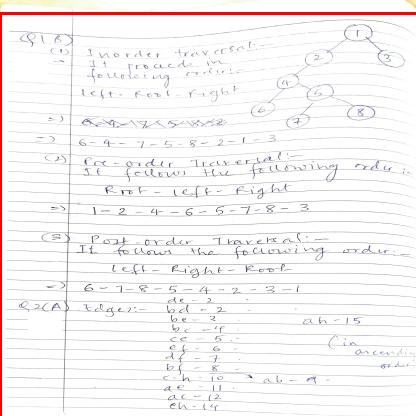 Q1 B)
(1) Inorder traversal:-
It proceed in
following order:-
Left-Root-Right
1
2
3
4
5
6
7
8
=> 6-4-7-5-8-2-1-3
(2) Pre-order Traversal:-
It follows the following order:-
Root-Left-Right
=> 1-2-4-6-5-7-8-3
(3) Post-order Traversal:-
It follows the following order:-
Left-Right-Root
=> 6-7-8-5-4-2-3-1
Q2(A) Edges:- de-2
bd-2
be-3
bc-4
ce-5
ef-6
df-7
bf-8
c-h-10
ae-11
ac-12
eh-14
ah-15
(in
ascending
order